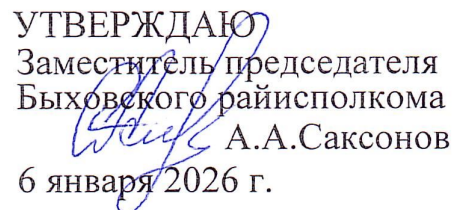 УТВЕРЖДАЮ
Заместитель председателя
Быховского райисполкома
А.А.Саксонов
6 января 2026 г.